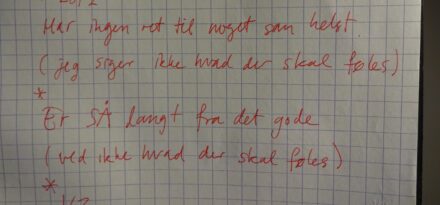 Har ingen ret til noget som helst.
(jeg siger ikke hvad der skal føles)
*
Er SÅ langt fra det gode
(ved ikke hvad der skal føles)
*